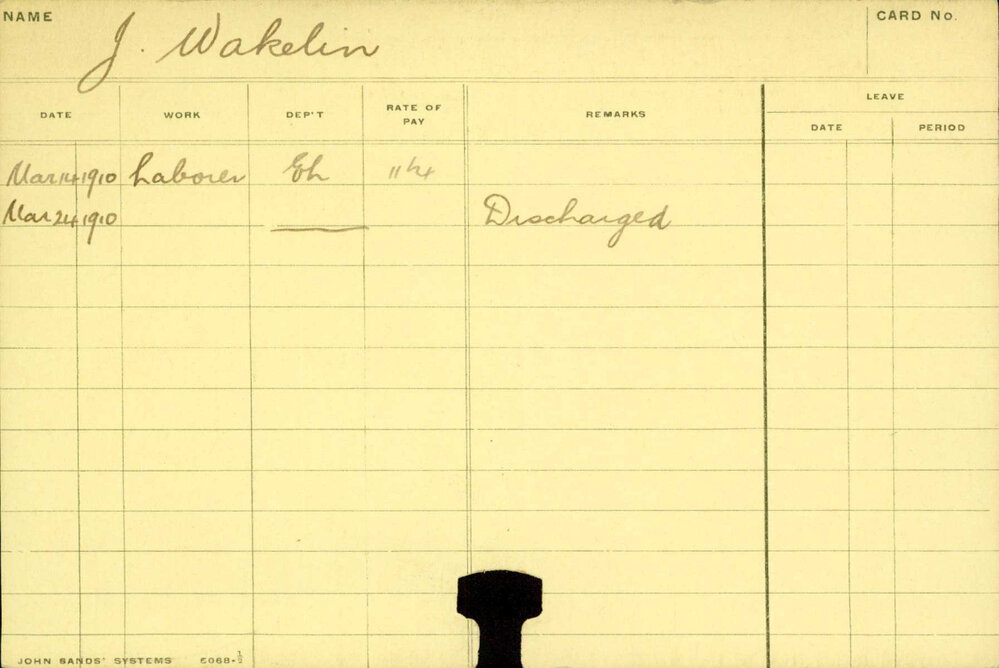 NAME J. Wakelin CARD No.
LEAVE
DATE WORK DEP'T RATE OF PAY REMARKS DATE PERIOD
Mar 14 1910 Laborer
Mar 24 1910 Discharged
JOHN SANDS' SYSTEMS 5068-½